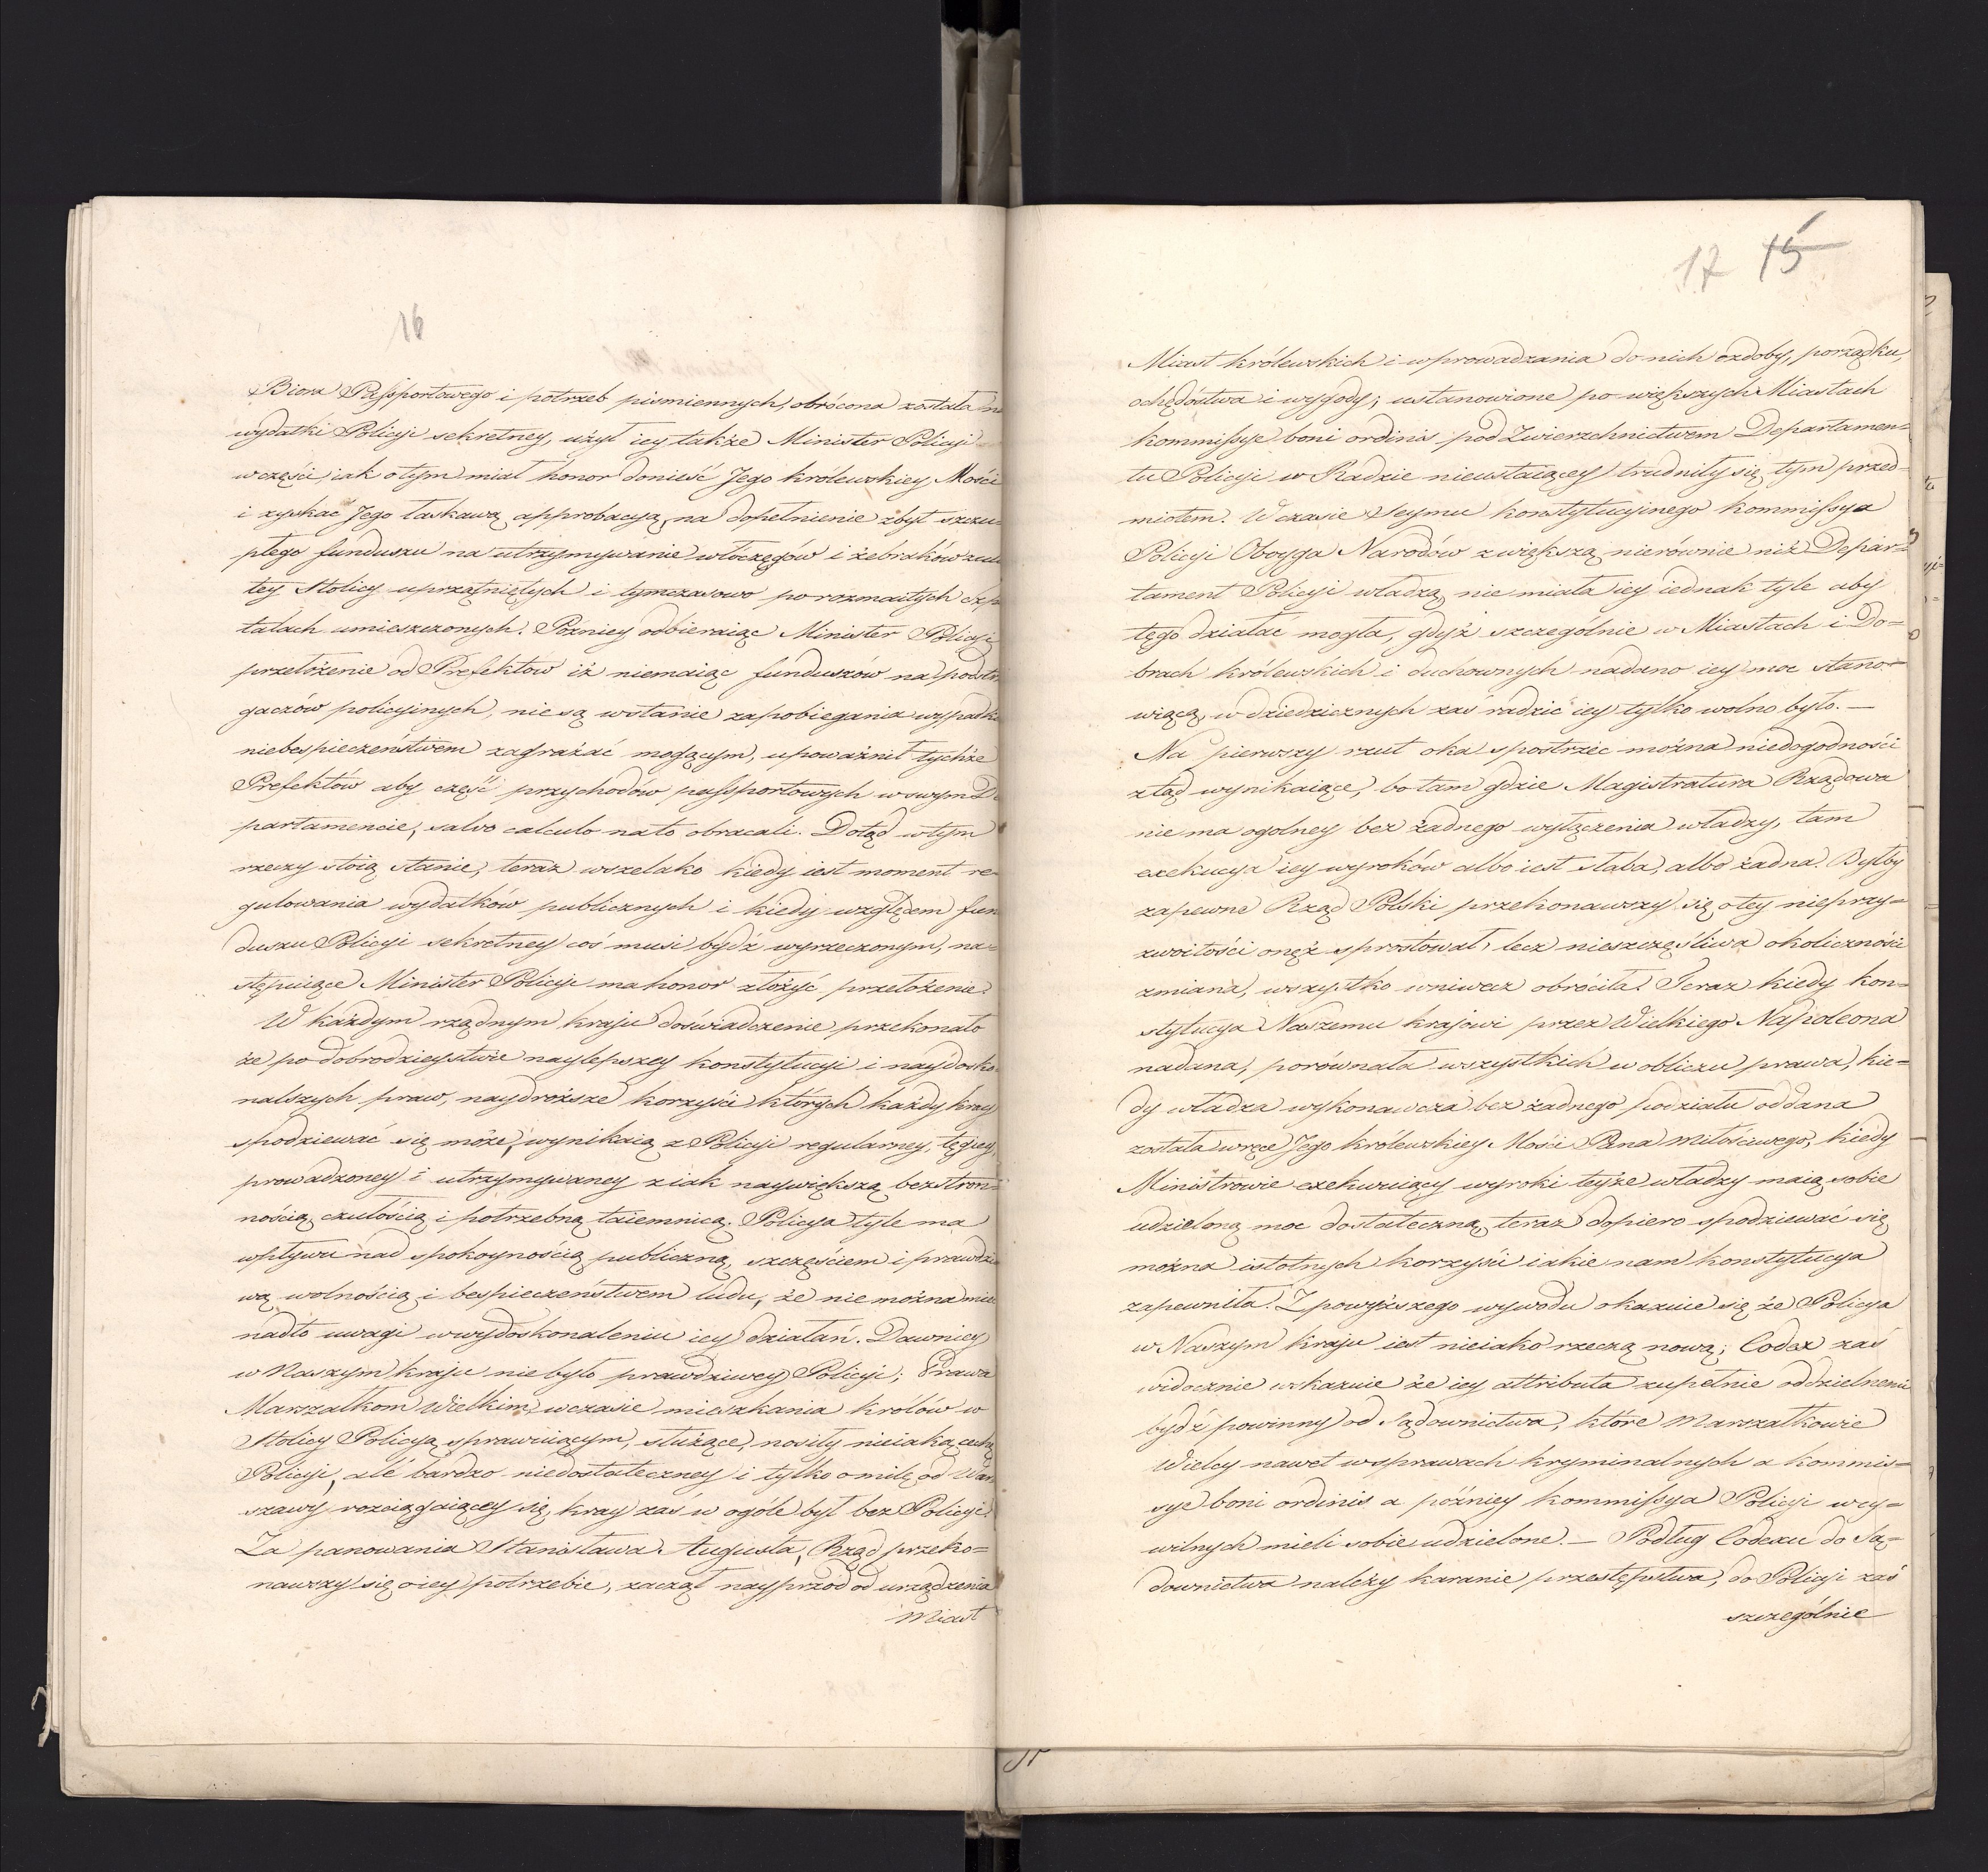 16
Biora Passportowego i potrzeb pismiennych, obrócona została na
wydatki Policyi sekretney, użył iey także Minister Policyi
w części, iak o tym miał honor donieść Jego królewskiey Mości
i zyskać Jego łaskawą approbacyją, na dopełnienie zbyt szczu=
płego funduszu na utrzymywanie włóczęgów i żebraków z tu
tey Stolicy uprzątniętych i tymczasowo po rozmaitych Szpi
talach umieszczonych. Pózniey odbieraiąc Minister Policyi
przełożenie od Prefektow iż niemaiąc funduszów na podstrze
gaczów policyinych, nie są wstanie zapobiegania wypadko
niebespieczeństwem zagrażać mogącym, upoważnił tychże
Prefektów aby część przychodów passportowych w swym De
partamencie, salvo calculo na to obracali. Dotąd w tym
rzeczy stoią stanie, teraz wszelako kiedy iest moment re=
gulowania wydatków publicznych i kiedy względem fun
duszu Policyi sekretney coś musi bydź wyrzeczonym, na=
stępuiące Minister Policyi ma honor złożyć przełożenie.
W każdym rządnym kraju doświadczenie przekonało
że po dobrodzieystwie naylepszey konstytucyi i naydosko=
nalszych praw, naydroższe korzyści których każdy kray
spodziewać się może, wynikaią z Policyi regularney, tęgiey,
prowadzoney i utrzymywaney z iak naywiększą bezstron=
nością, czułością i potrzebną taiemnicą. Policya tyle ma
wpływu nad spokoynością publiczną, szczęściem i prawdzi
wą wolnością i bespieczeństwem ludu, że nie można mieć
nadto uwagi w wydoskonaleniu iey działań. Dawniey
w Naszym kraju nie było prawdziwey Policyi; Prawa
Marszałkom Wielkim, w czasie mieszkania królów w
Stolicy Policyą sprawuiącym, służące, nosiły nieiaką cechę
Policyi, ale bardzo niedostateczney i tylko o milę od War
szawy rozciągaiącey się, kray zaś w ogóle był bez Policyi.
Za panowania Stanisława Augusta, Rząd przeko=
nawszy się o iey potrzebie, zaczął nayprzód od urządzenia
Miast
17 15
Miast królewskich i wprowadzania do nich ozdoby, porządku,
ochędóstwa i wygody; ustanowione po większych Miastach
kommissye boni ordinis pod Zwierzchnictwem Departamen=
tu Policyi w Radzie nieustaiącey trudniły się tym przed=
miotem. W czasie Seymu konstytucyinego kommissya
Policyi Oboyga Narodów z większą nierównie niż Depar=
tament Policyi władzą, nie miała iey iednak tyle aby
tęgo działać mogła, gdyż szczególnie w Miastach i Do=
brach królewskich i duchownych nadano iey moc stano=
wiącą, w dziedzicznych zaś radzić iey tylko wolno było. —
Na pierwszy rzut oka spostrzec można niedogodności
ztąd wynikaiące, bo tam gdzie Magistratura Rządowa
nie ma ogolney bez żadnego wyłączenia władzy, tam
exekucya iey wyroków albo iest słaba, albo żadna. Byłby
zapewne Rząd Polski przekonawszy się o tey nieprzy=
zwoitości onęż sprostował, lecz nieszczęśliwa okoliczności
zmiana, wszystko wniwecz obróciła. Teraz kiedy kon=
stytucya Naszemu krajowi przez Wielkiego Napoleona
nadana, porównała wszystkich w obliczu prawa, kie=
dy władza wykonawcza bez żadnego podziału oddana
została w ręce Jego królewskiey Mości Pana Miłościwego, kiedy
Ministrowie exekwuiący wyroki teyże władzy maią sobie
udzieloną moc dostateczną, teraz dopiero spodziewać się
można istotnych korzyści iakie nam konstytucya
zapewniła. Z powyższego wywodu okazuie się że Policya
w Naszym kraju iest nieiako rzeczą nową; Codex zaś
widocznie wskazuie że iey attributa zupełnie oddzielnemi
bydź powinny od Sądownictwa, które Marszałkowie
Wielcy nawet w sprawach kryminalnych a kommis=
sye boni ordinis a późniey kommissya Policyi w cy=
wilnych mieli sobie udzielone. — Podług Codexu do Są=
downictwa należy karanie przestępstwa, do Policyi zaś
szczególnie